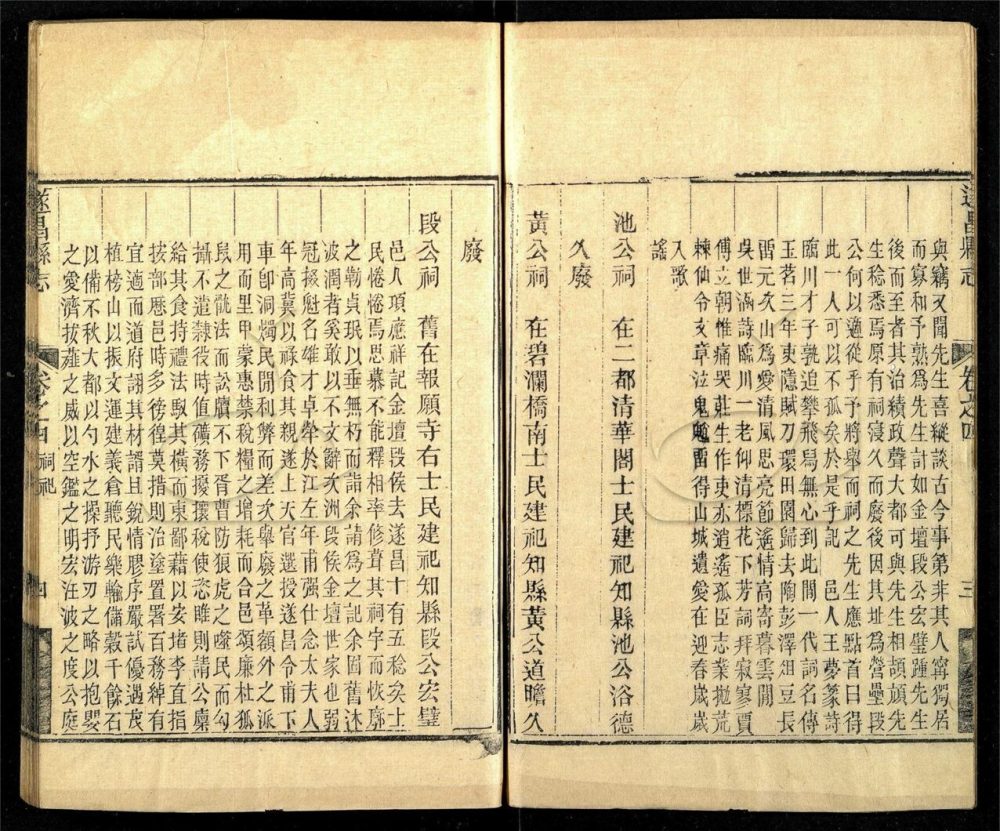 遂昌縣志
卷之四
三
與竊又聞先生喜縱談古今事第非其人寗獨居
而寡和予熟爲先生計如金壇段公宏璧踵先生
後而至者其治績政聲大都可與先生相頡頏先
生稔悉焉原有祠寢久而廢後因其址爲營壘段
公何以適從乎予將舉而祠之先生應點首曰得
此一人可以不孤矣於是乎記 邑人王夢篆詩
臨川才子孰追攀飛舄無心到此間一代詞名傳
玉茗三年吏隱賦刀環田園歸去陶彭澤俎豆長
留元次山爲愛清風思亮節遙情高寄暮雲閒
吳世涵詩臨川一老仰清標花下芳詞拜寂寥賈
傅立朝惟痛哭莊生作吏亦逍遙孤臣志業拋荒
棘仙令文章泣鬼魈留得山城遺愛在迎春歲歲
入歌
謠
池公祠 在二都清華閣士民建祀知縣池公浴德
久廢
黃公祠 在碧瀾橋南士民建祀知縣黃公道瞻久
廢
段公祠 舊在報願寺右士民建祀知縣段公宏璧
邑人項應祥記金壇段侯去遂昌十有五稔矣士
民惓惓焉思慕不能釋相率修葺其祠宇而恢廓
之勒貞珉以垂無朽而詣余請爲之記余固舊沐
波潤者奚敢以不文辭次洲段侯金壇世家也弱
冠掇魁名雄才卓犖於江左年甫強仕念太夫人
年高冀以祿食其親遂上天官選授遂昌令甫下
車卽洞燭民閒利弊而差次舉廢之革額外之派
用而里甲蒙惠禁稅糧之增耗而合邑頌廉杜狐
鼠之骫法而訟牘不下胥曹防狼虎之噬民而勾
攝不遣隸役時值礦務擾攘稅使恣睢則請公廩
給其食持禮法馭其橫而東鄙藉以安堵李直指
按部歷邑時多徬徨莫措則治塗置署百務綽有
宜適而道府詡其材諝且銳情膠序嚴試優遇廣
植榜山以振文運建義倉聽民樂輸儲穀千餘石
以備不秋大都以勺水之操抒游刃之略以抱嬰
之愛濟拔薤之威以空鑑之明宏汪波之度公庭
遂昌縣志
卷之四 祠祀
四